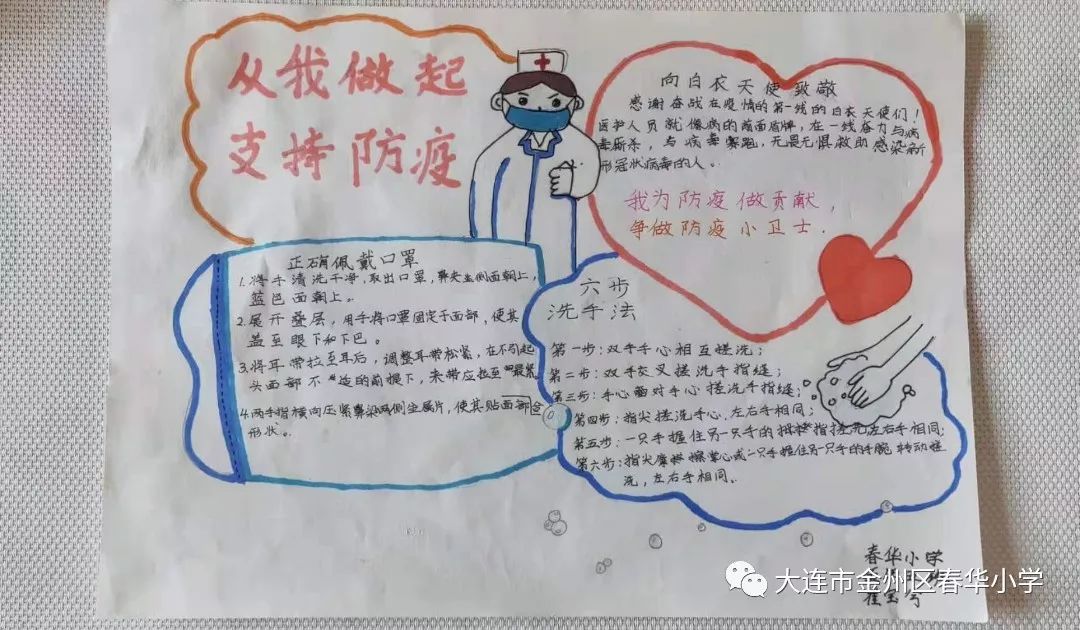 从我做起
支持防疫
向白衣天使致敬
感谢奋战在疫情的第一线的白衣天使们！
医护人员就像病的前面盾牌，在一线奋力与病
毒厮杀，与病毒赛跑，无畏无惧救助感染新
形冠状病毒的人。
我为防疫做贡献，
争做防疫小卫士．
正确佩戴口罩
1.将手清洗干净，取出口罩，鼻夹金侧面朝上，
蓝色面朝上。
2.展开叠层，用手将口罩固定于面部，使其
盖至眼下和下巴。
3.将耳带拉至耳后，调整耳带松紧，在不引起
头面部不适的前提下，束带应拉至最紧
4.两手指横向压紧鼻梁两侧金属片，使其贴面部
形状。
六步
洗手法
第一步：双手手心相互搓洗；
第二步：双手交叉搓洗手指缝；
第三步：手心对手心搓洗手指缝；
第四步：指尖搓洗手心，左右手相同；
第五步：一只手握住另一只手的拇指搓洗左右手相同；
第六步：指尖摩擦掌心或一只手握住另一只手的手腕转动搓
洗，左右手相同。
春华小学
大连市金州区春华小学